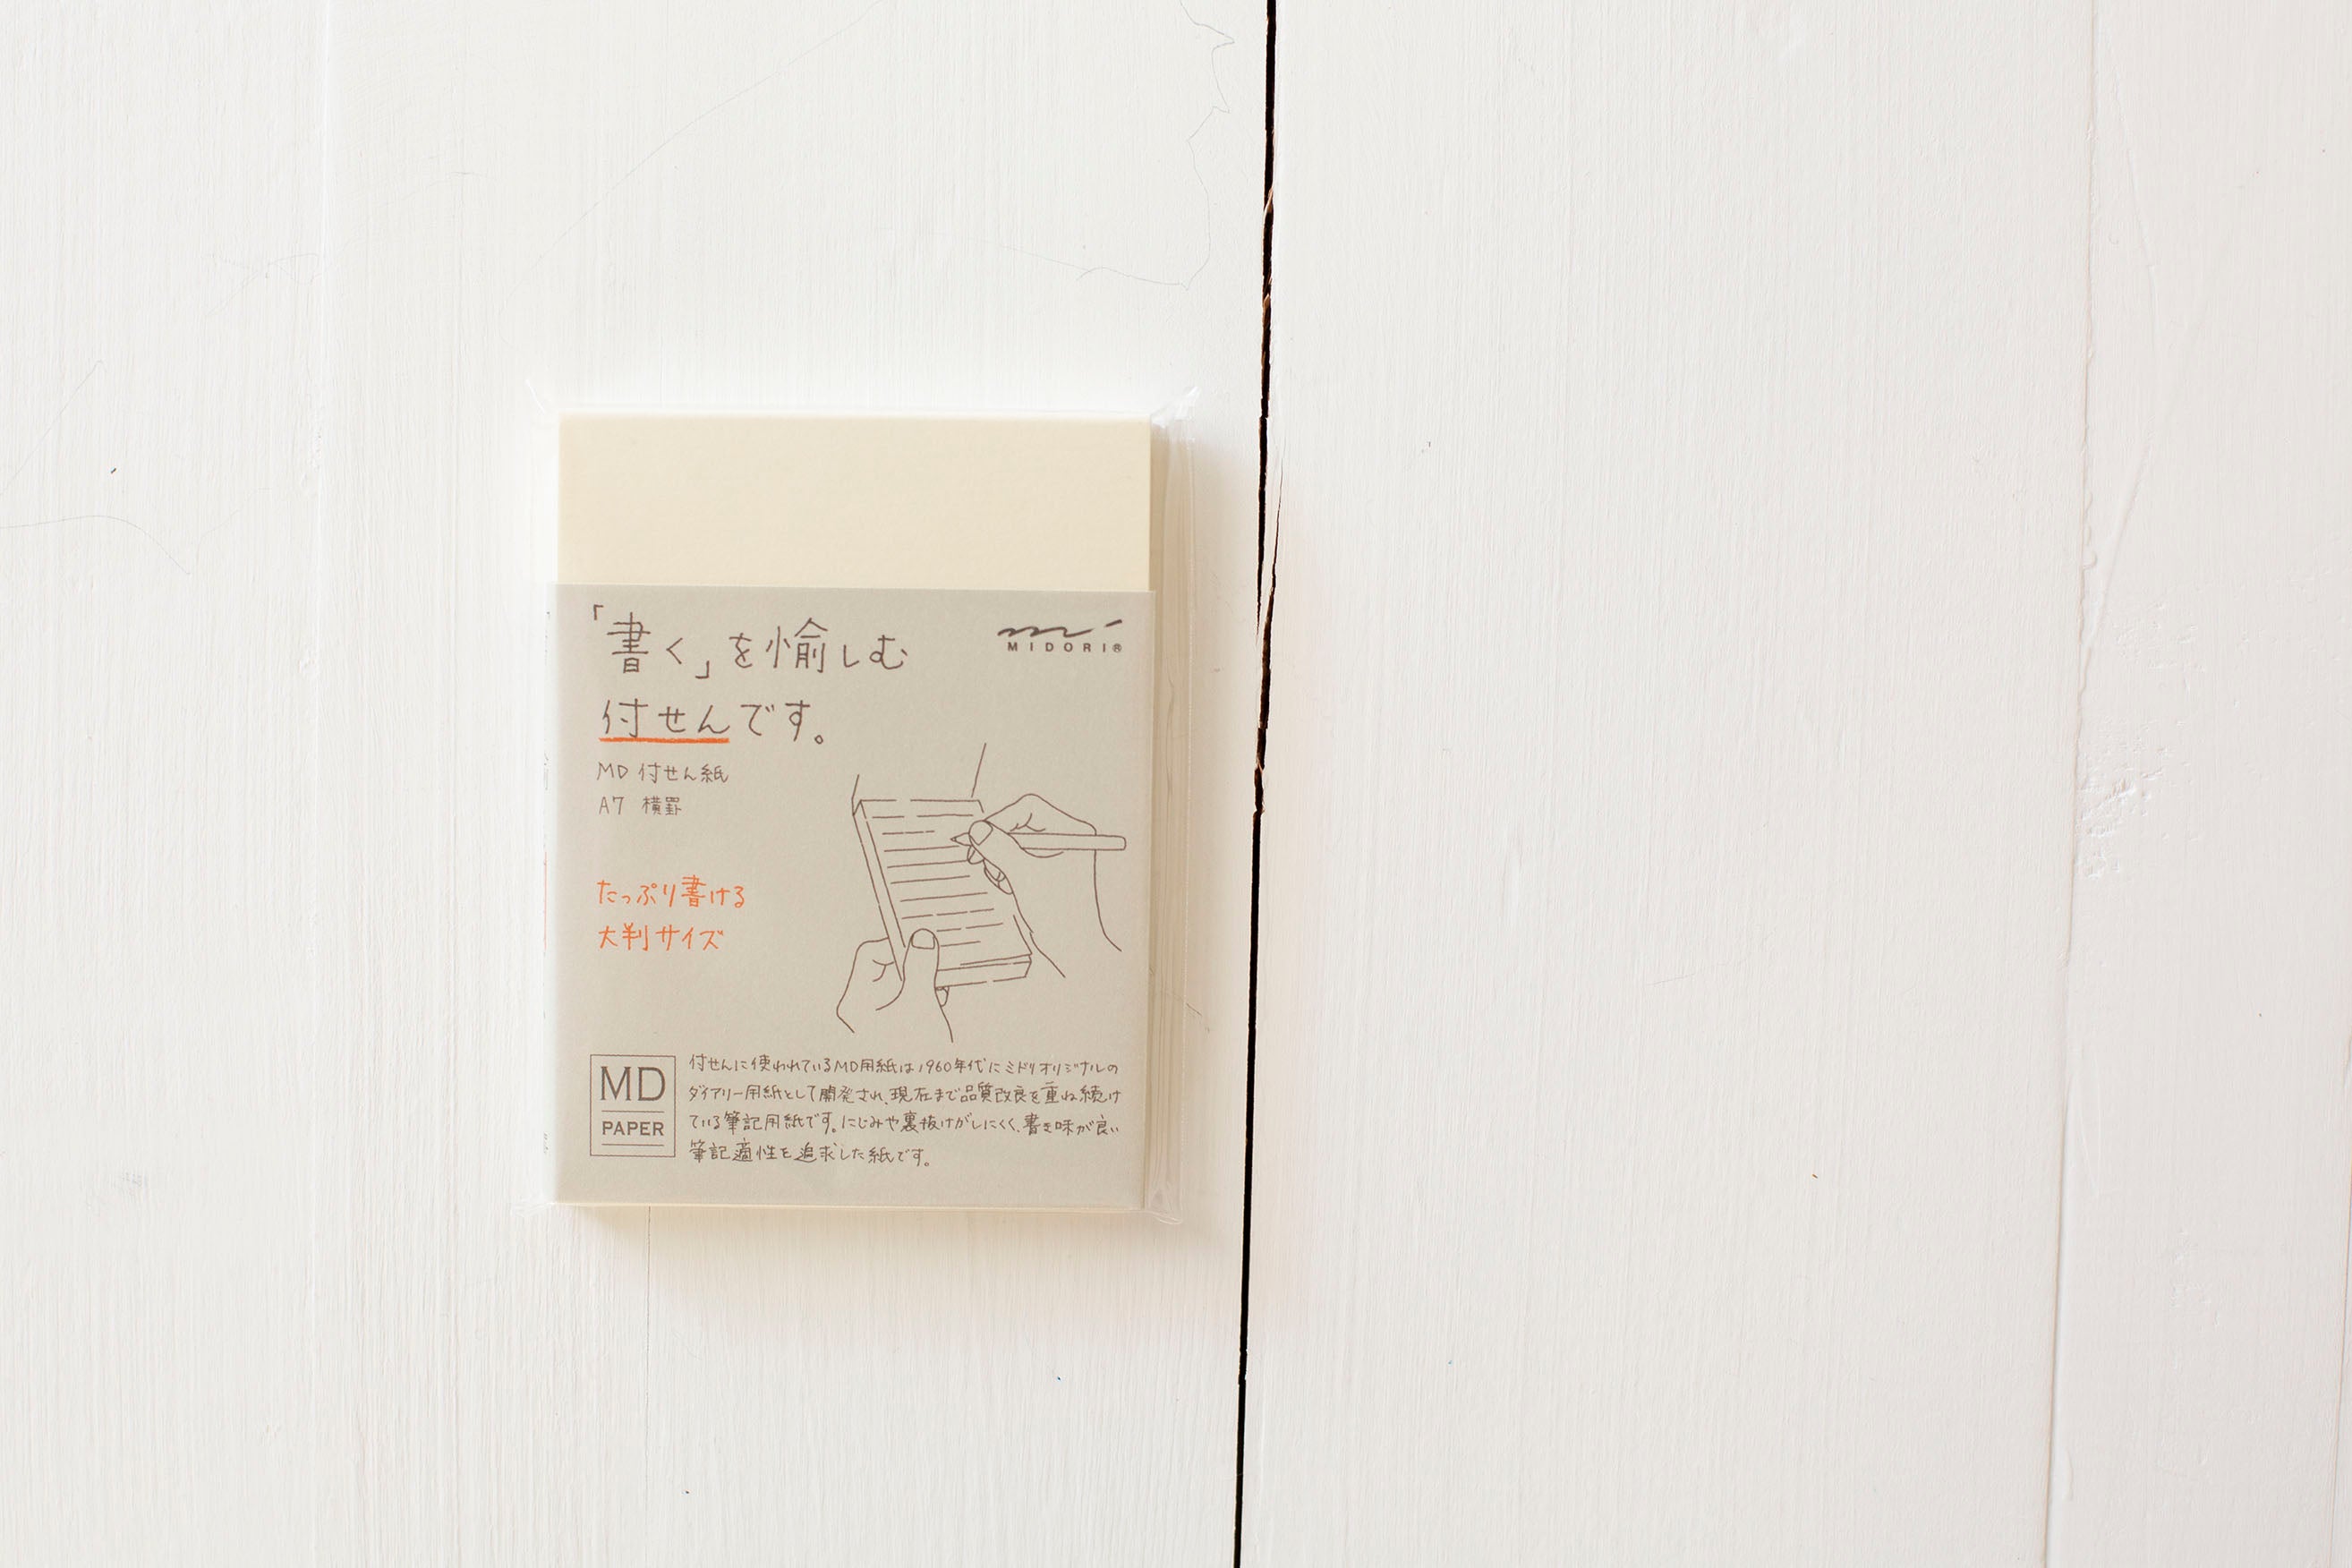 「書く」を愉しむ
付せんです。
MIDORI®
MD 付せん紙
A7 横罫
たっぷり書ける
大判サイズ
MD
PAPER
付せんに使われているMD用紙は1960年代にミドリオリジナルの
ダイアリー用紙として開発され、現在まで品質改良を重ね続け
ている筆記用紙です。にじみや裏抜けがしにくく、書き味が良い
筆記適性を追求した紙です。